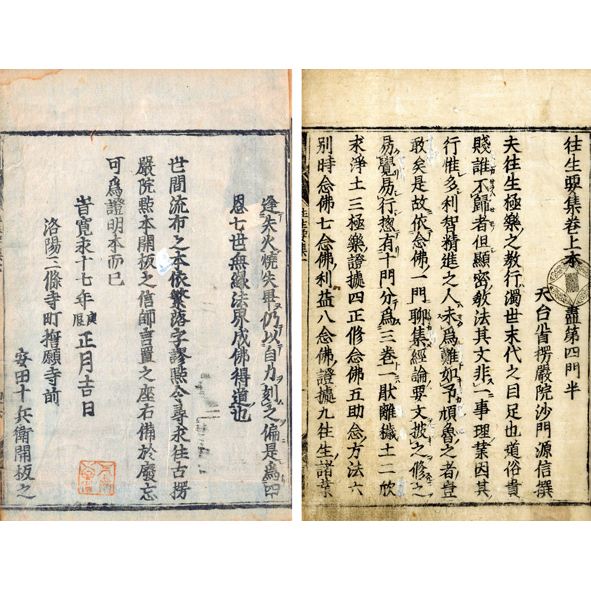 往生要集卷上本 盡第四門半
天台首楞嚴院沙門源信撰
夫往生極樂之教行濁世末代之目足也道俗貴
賤誰不歸者但顯密教法其文非一事理業因其
行惟多利智精進之人未爲難如予頑魯之者豈
敢矣是故依念佛一門聊集經論要文披之修之
易覺易行惣有十門分爲三卷一猒離穢土二欣
求淨土三極樂證據四正修念佛五助念方法六
別時念佛七念佛利益八念佛證據九往生諸業
逢失火燒失畢仍以自力刻之偏是爲四
恩七世無緣法界成佛得道也
世間流布之本依繁落字謬點今尋求往古楞
嚴院點本開板之信師言置之座右備於廢忘
可爲證明本而已
旹寬永十七年庚辰正月吉日
洛陽三條寺町誓願寺前
安田十兵衛開板之